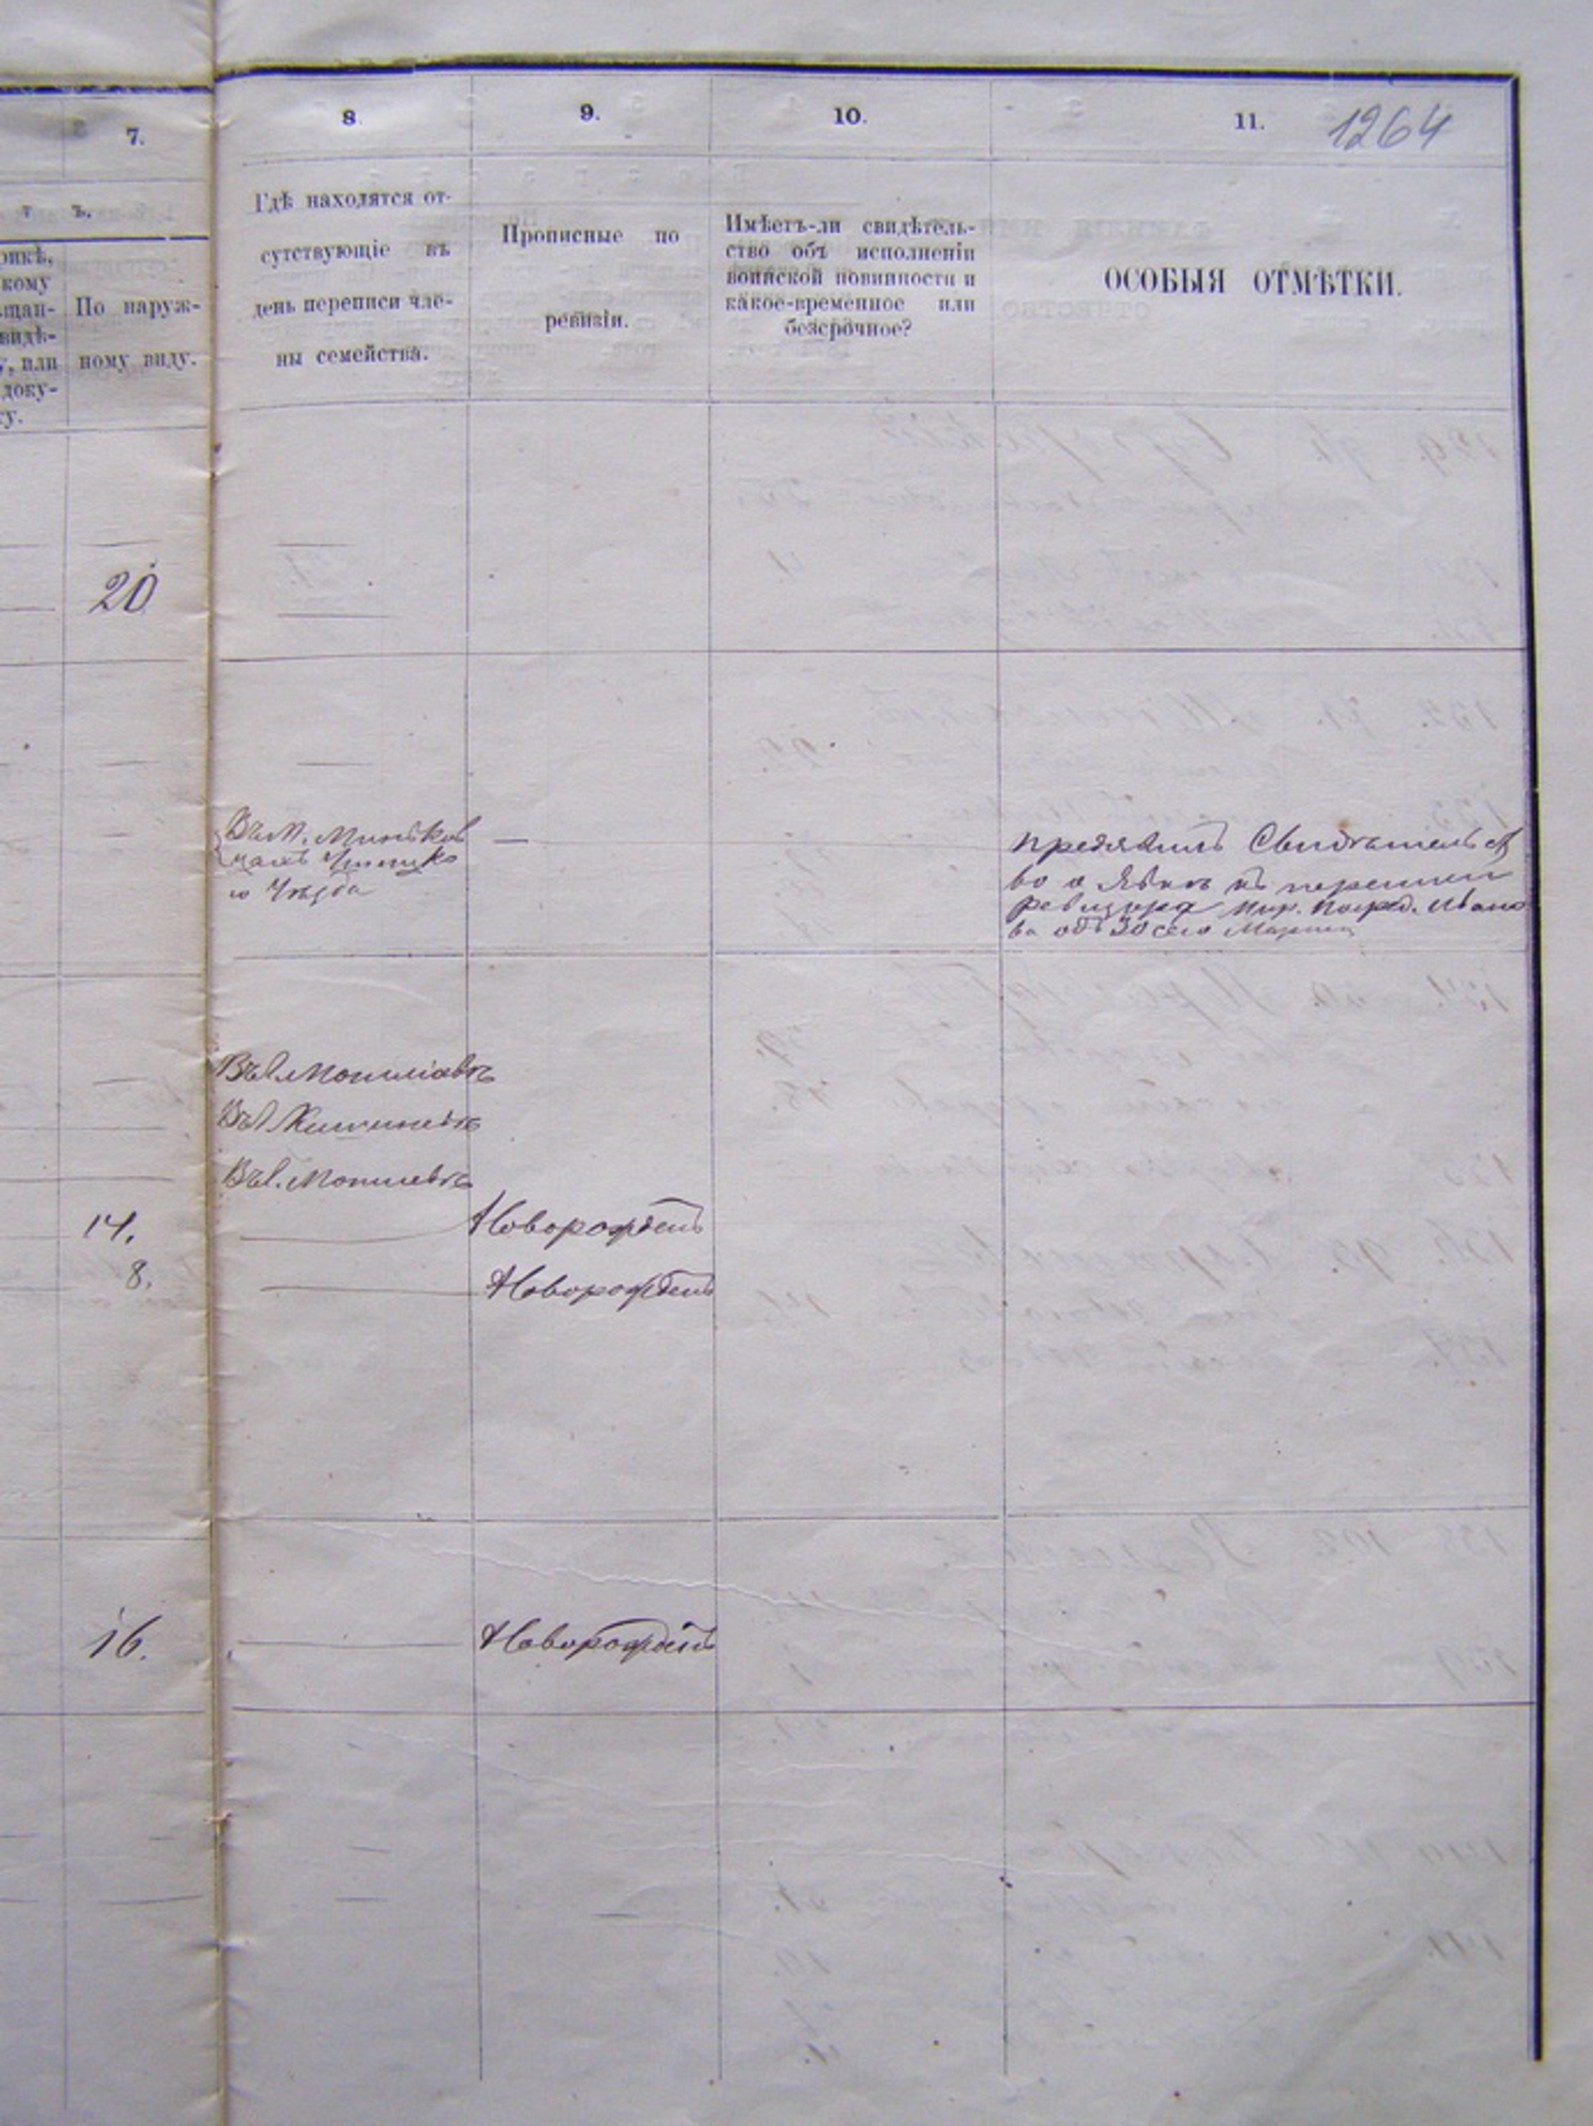 7.
8
9.
10.
11.
1264
т ъ.
рикѣ,
кому
щан-
видѣ-
, или
доку-
у.
По наруж-
ному виду.
Гдѣ находятся от-
сутствующіе въ
день переписи чле-
ны семейства.
Прописные по
ревизіи.
Имѣетъ-ли свидѣтель-
ство объ исполненіи
воинской повинности и
какое-временное или
безсрочное?
ОСОБЫЯ ОТМѢТКИ.
20
Въ м. Миньков
Уѣзда
—
Предявилъ Свидѣтельст
во о явкѣ къ переписи
ревизора Мир. Посред. Ивано
ва отъ 30 сего Марта
Въ г. Могилевѣ
Въ г. Кишиневѣ
Въ г. Могилевѣ
14.
Новорожден
8.
Новорожден
16.
Новорожден